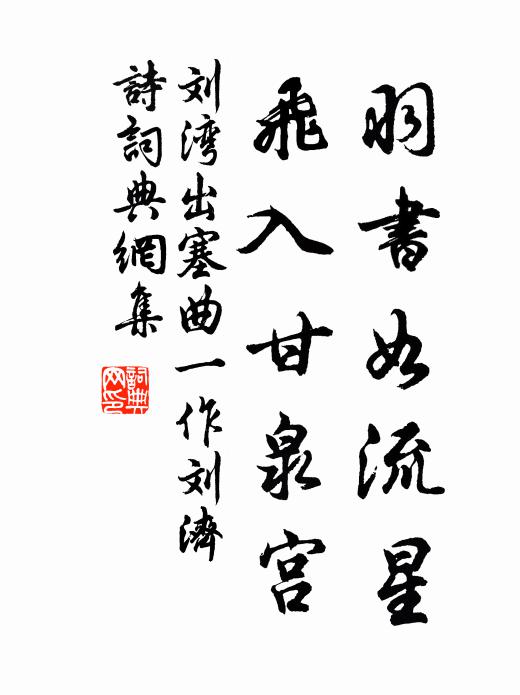 羽書如流星
飛入甘泉宫
刘湾出塞曲一作刘濟
詩詞典網集
詞典网印